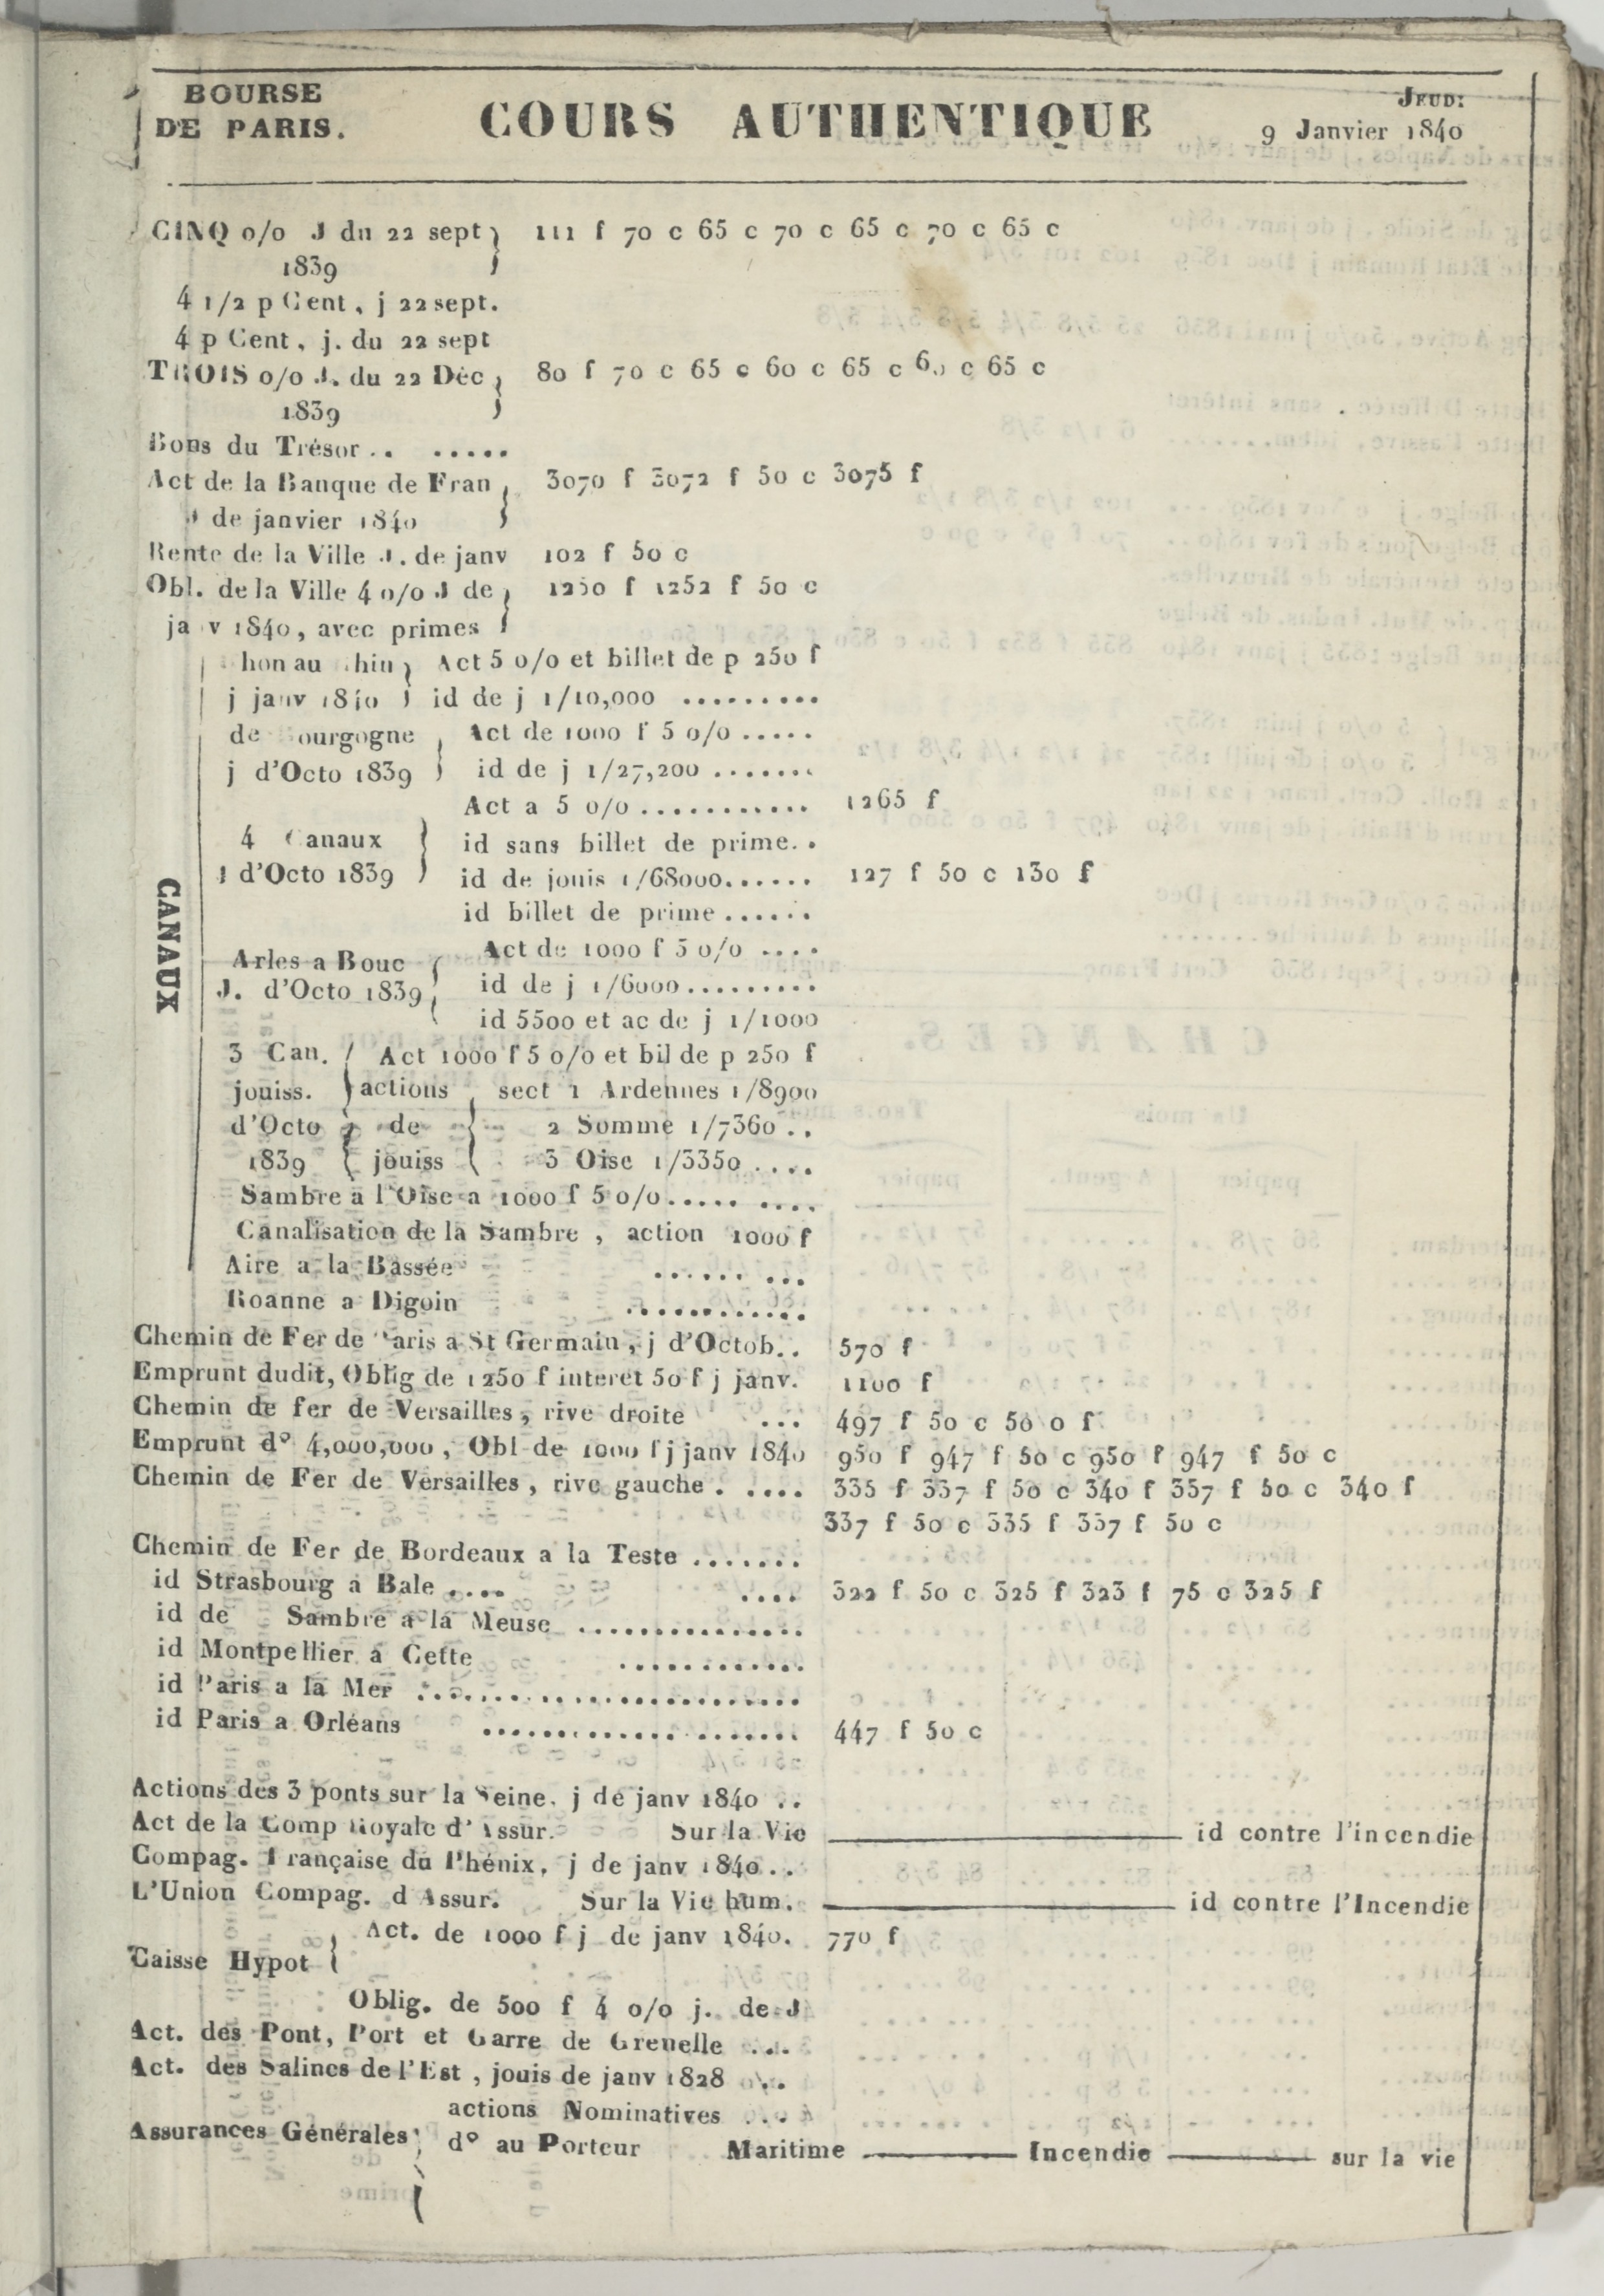 BOURSE
DE PARIS.
COURS AUTHENTIQUE
JEUDI
9 Janvier 1840
CINQ o/o J du 22 sept 111 f 70 c 65 c 70 c 65 c 70 c 65 c
1839
4 1/2 p Cent, j 22 sept.
4 p Cent, j. du 22 sept
TROIS o/o J. du 22 Déc 80 f 70 c 65 c 60 c 65 c 60 c 65 c
1839
Bons du Trésor .. .....
Act de la Banque de Fran 3070 f 3072 f 50 c 3075 f
J de janvier 1840
Rente de la Ville J. de janv 102 f 50 c
Obl. de la Ville 4 o/o J de 1250 f 1252 f 50 c
janv 1840, avec primes
CANAUX
hon au hin Act 5 o/o et billet de p 250 f
j janv 1840 id de j 1/10,000 .........
de Bourgogne Act de 1000 f 5 o/o .....
j d'Octo 1839 id de j 1/27,200 .......
Act a 5 o/o ........... 1265 f
4 Canaux id sans billet de prime. .
J d'Octo 1839 id de jouis 1/68000...... 127 f 50 c 130 f
id billet de prime ......
Arles a Bouc Act de 1000 f 5 o/o ....
J. d'Octo 1839 id de j 1/6000.........
id 5500 et ac de j 1/1000
3 Can. Act 1000 f 5 o/o et bil de p 250 f
jouiss. actions sect 1 Ardennes 1/8900
d'Octo de 2 Somme 1/7360 . .
1839 jouiss 3 Oise 1/3350 ....
Sambre a l'Oise a 1000 f 5 o/o..... ....
Canalisation de la Sambre , action 1000 f
Aire a la Bassée ...... ...
Roanne a Digoin ............
Chemin de Fer de Paris a St Germain, j d'Octob. . 570 f
Emprunt dudit, Oblig de 1250 f interet 50 f j janv. 1100 f
Chemin de fer de Versailles, rive droite ... 497 f 50 c 50 o f
Emprunt d° 4,000,000 , Obl de 1000 f j janv 1840 950 f 947 f 50 c 950 f 947 f 50 c
Chemin de Fer de Versailles , rive gauche . .... 335 f 337 f 50 c 340 f 337 f 50 c 340 f
337 f 50 c 335 f 337 f 50 c
Chemin de Fer de Bordeaux a la Teste .......
id Strasbourg a Bale .... .... 322 f 50 c 325 f 323 f 75 c 325 f
id de Sambre a la Meuse ...............
id Montpellier a Cette ............
id Paris a la Mer .........................
id Paris a Orléans .................... 447 f 50 c
Actions des 3 ponts sur la Seine, j de janv 1840 . .
Act de la Comp Royale d'Assur. Sur la Vie id contre l'incendie
Compag. Française du Phénix, j de janv 1840. .
L'Union Compag. d Assur. Sur la Vie hum. id contre l'Incendie
Act. de 1000 f j de janv 1840. 770 f
Caisse Hypot
Oblig. de 500 f 4 o/o j. de J
Act. des Pont, Port et Garre de Grenelle ...
Act. des Salines de l'Est , jouis de janv 1828 . .
actions Nominatives ...
Assurances Générales d° au Porteur Maritime Incendie sur la vie